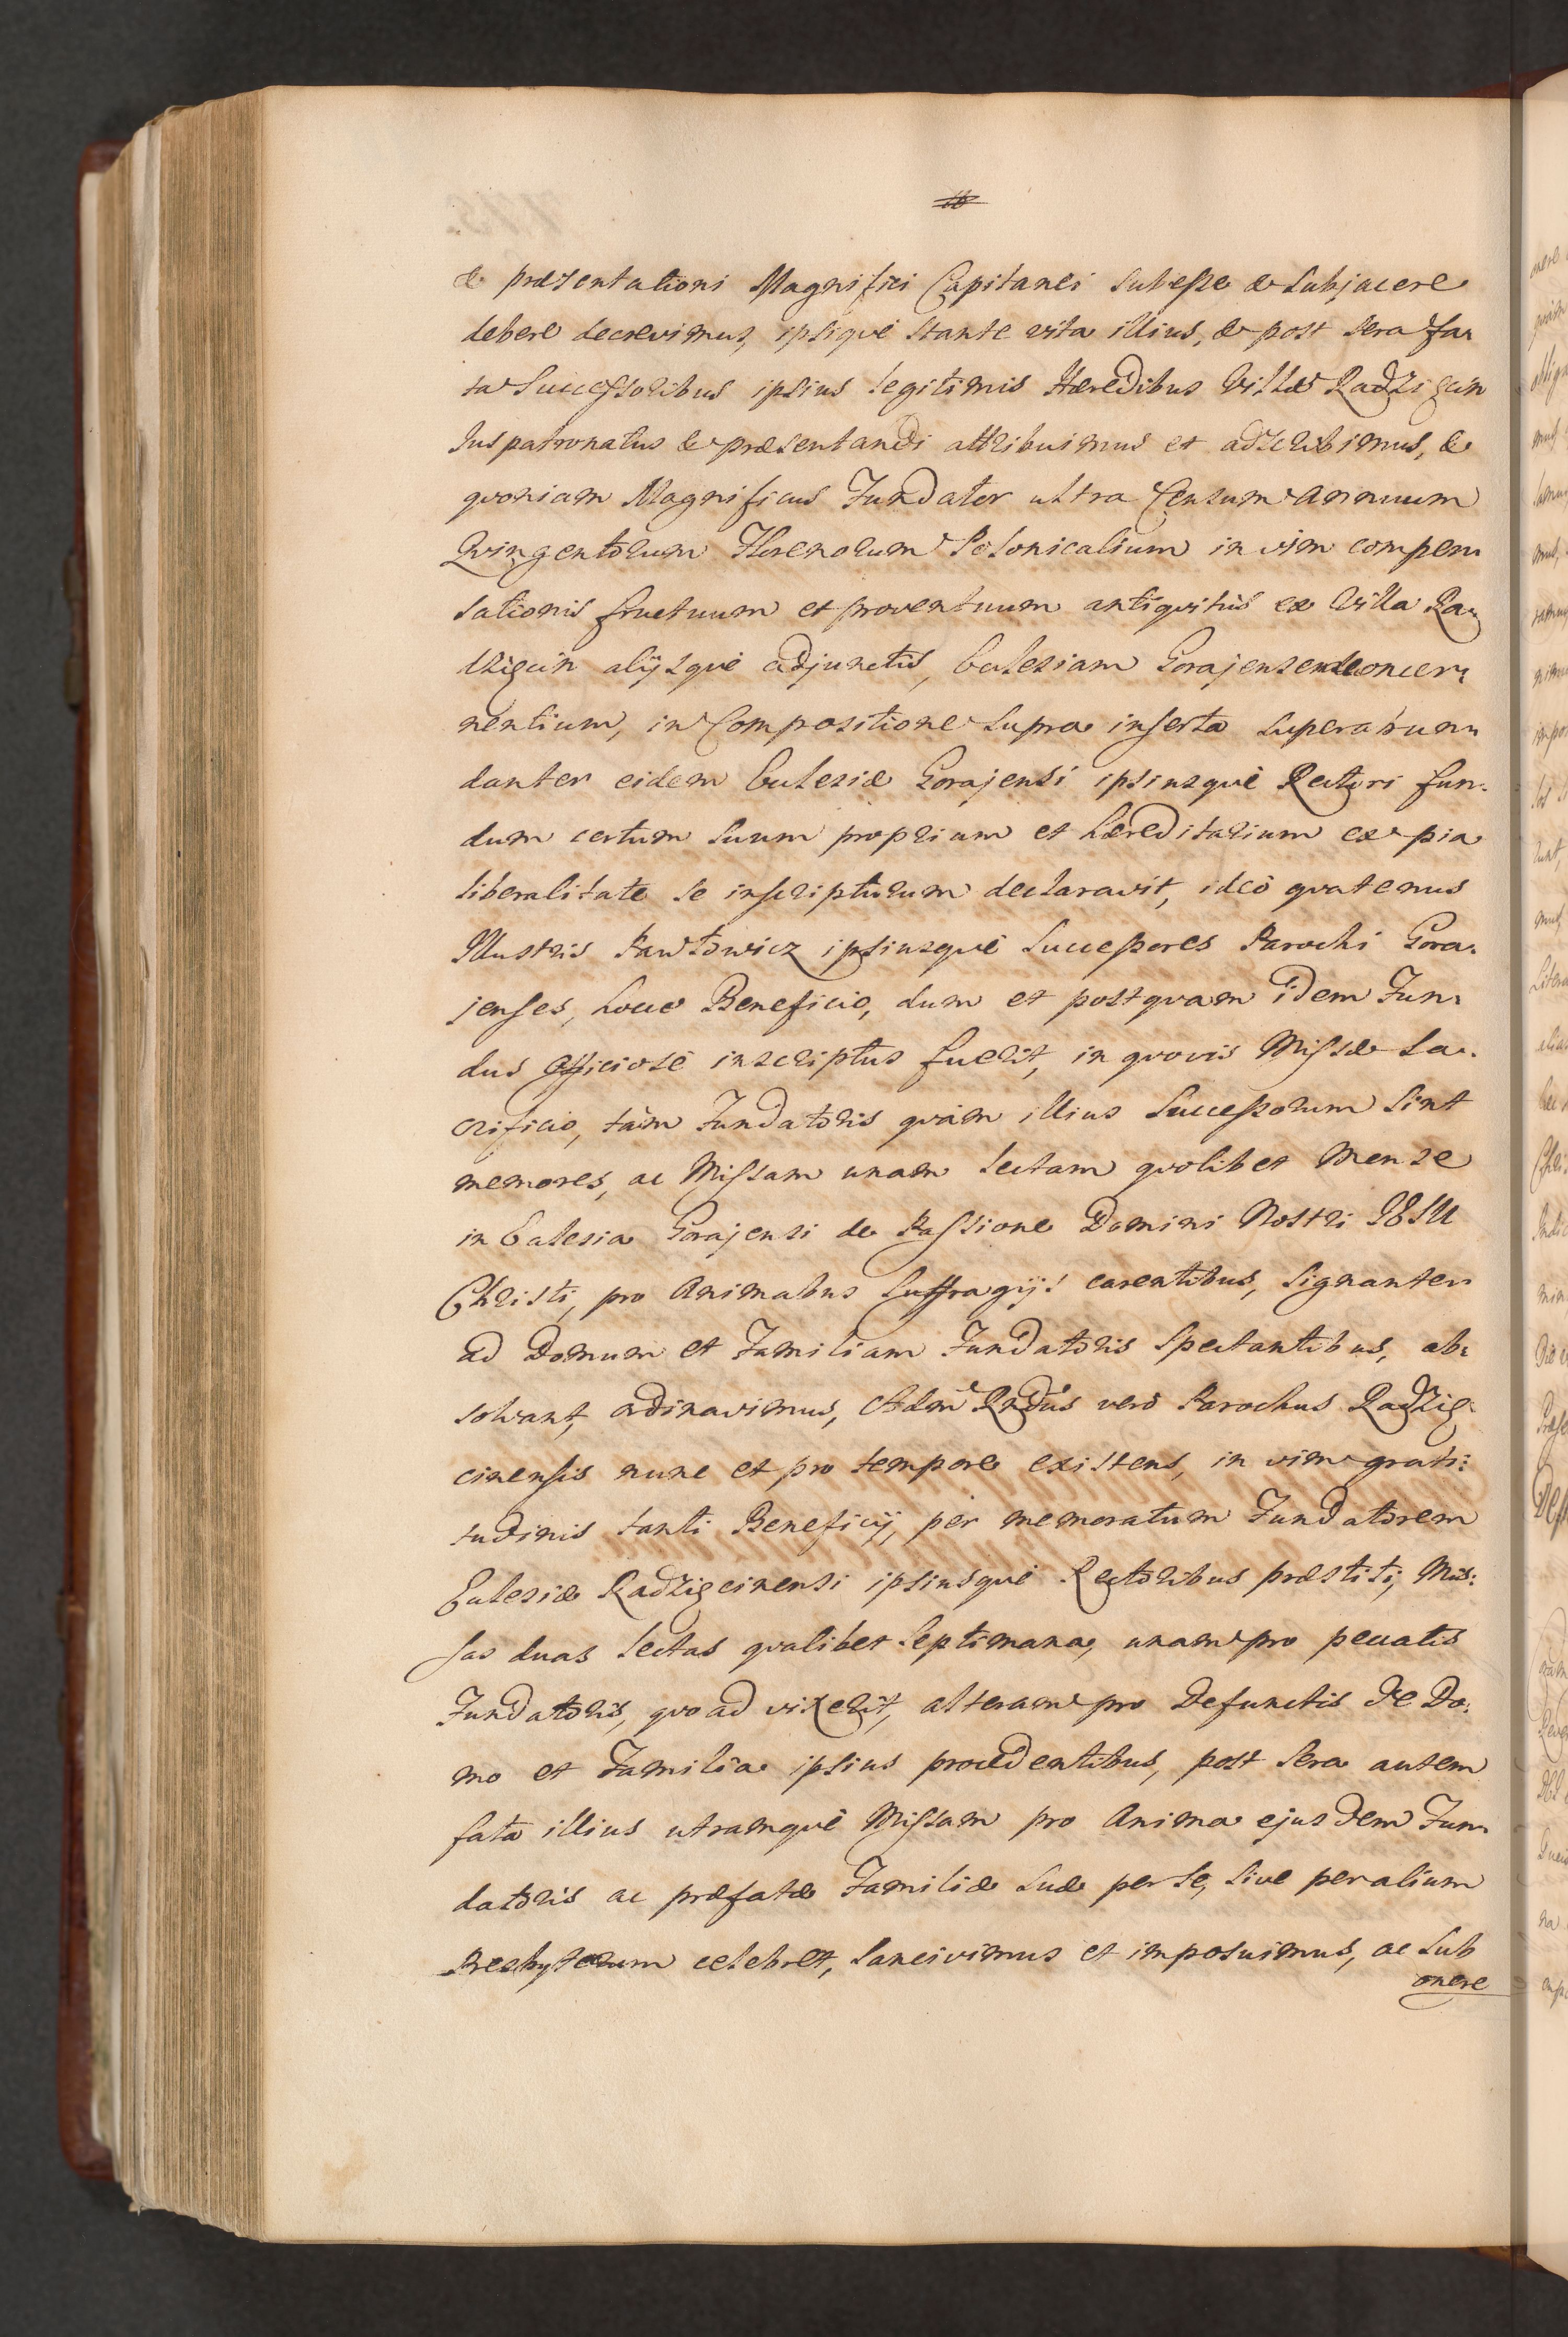 & præsentationi Magnifici Capitanei subesse & subjacere
debere decrevimus, ipsiquè stante vita illius, & post sera fa-
ta Successoribus ipsius legitimis Hæredibus Villæ Radzięcin
Juspatronatus & præsentandi attribuimus et adscribimus, &
qvoniam Magnificus Fundator ultra Censum annuum
Qvingentorum Florenorum Polonicalium in vim compen-
sationis fructuum et proventuum antiqvitùs ex Villa Ra-
dzięcin alijsquè adjunctis, Eclesiam Gorajensem concer-
nentium, in Compositione supra inserta superabun-
danter eidem Eclesiæ Gorajensi ipsiusquè Rectori fun-
dum certum suum proprium et hæreditarium ex pia
liberalitate se inscripturum declaravit, ideò qvatenus
Illustris Pawłowicz ipsiusquè Successores Parochi Gora-
jenses, hocce Beneficio, dum et postqvam idem Fun-
dus officiosè inscriptus fuerit, in qvovis Missæ Sa-
crificio, tàm Fundatoris qvàm illius Successorum sint
memores, ac Missam unam lectam qvolibet Mense
in Eclesia Gorajensi de Passione Domini Nostri IESU
Christi, pro Animabus suffragijs carentibus, signanter
ad Domum et Familiam Fundatoris spectantibus, ab-
solvant, ordinavimus, Adm Rndus verò Parochus Radzię-
cinensis nunc et pro tempore existens, in vim grati-
tudinis tanti Beneficij, per memoratum Fundatorem
Eclesiæ Radzięcinensi ipsiusquè Rectoribus præstiti, Mis-
sas duas lectas qvalibet Septimana, unam pro peccatis
Fundatoris, qvoad vixerit, alteram pro Defunctis de Do-
mo et Familia ipsius procedentibus, post sera autem
fata illius utramquè Missam pro Anima ejusdem Fun-
datoris ac præfatæ Familiæ suæ per se, sive per alium
Presbyterum celebret, sancivimus et imposuimus, ac sub
onere